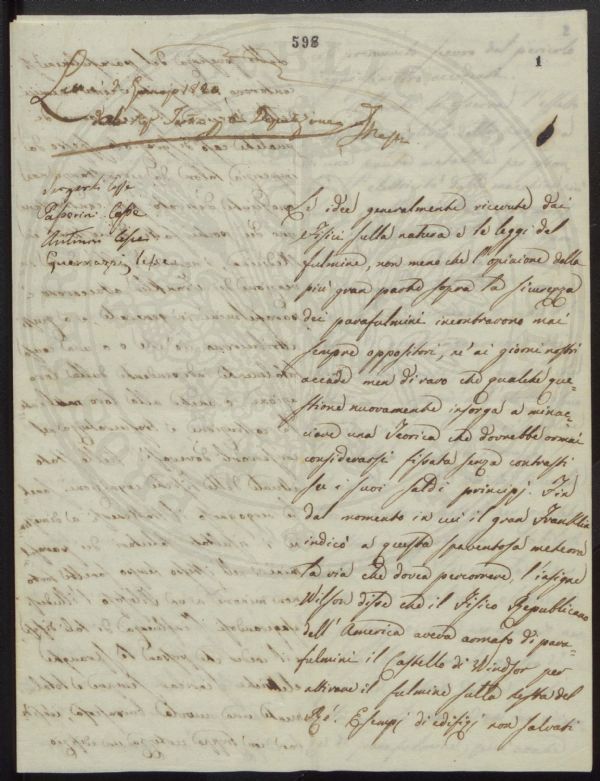 598
1
2
1820
Sergenti lesse
Paperini lesse
Antinori lesse
Guerrazzi lesse
Le idee generalmente ricevute dai
Fisici sulla natura e le leggi del
fulmine, non meno che l'opinione della
più gran parte sopra la sicurezza
dei parafulmini incontrarono mai
sempre oppositori, nè ai giorni nostri
accade men di raro che qualche que=
stione nuovamente insorga a minac=
ciare una Teorica che dovrebbe ormai
considerarsi fissata senza contrasti
su i suoi saldi principj. Fin
dal momento in cui il gran Franklin
indicò a questa spaventosa meteora
la via che dovea percorrere, l'insigne
Wilson disse che il Fisico Republicano
dell'America aveva armato di para=
fulmini il Castello di Windsor per
attirare il fulmine sulla testa del
Rè. Esempj di edifizj non salvati